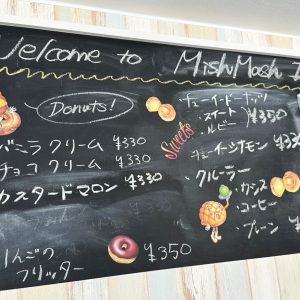 Welcome to MishMash
Donuts!
バニラ クリーム ¥330
チョコ クリーム ¥330
カスタードマロン ¥330
りんごの
フリッター ¥350
Sweets
チューイードーナッツ
・スイート
・ルビー ¥350
チューイーシナモン
クルーラー
・カシス
・コーヒー
・プレーン